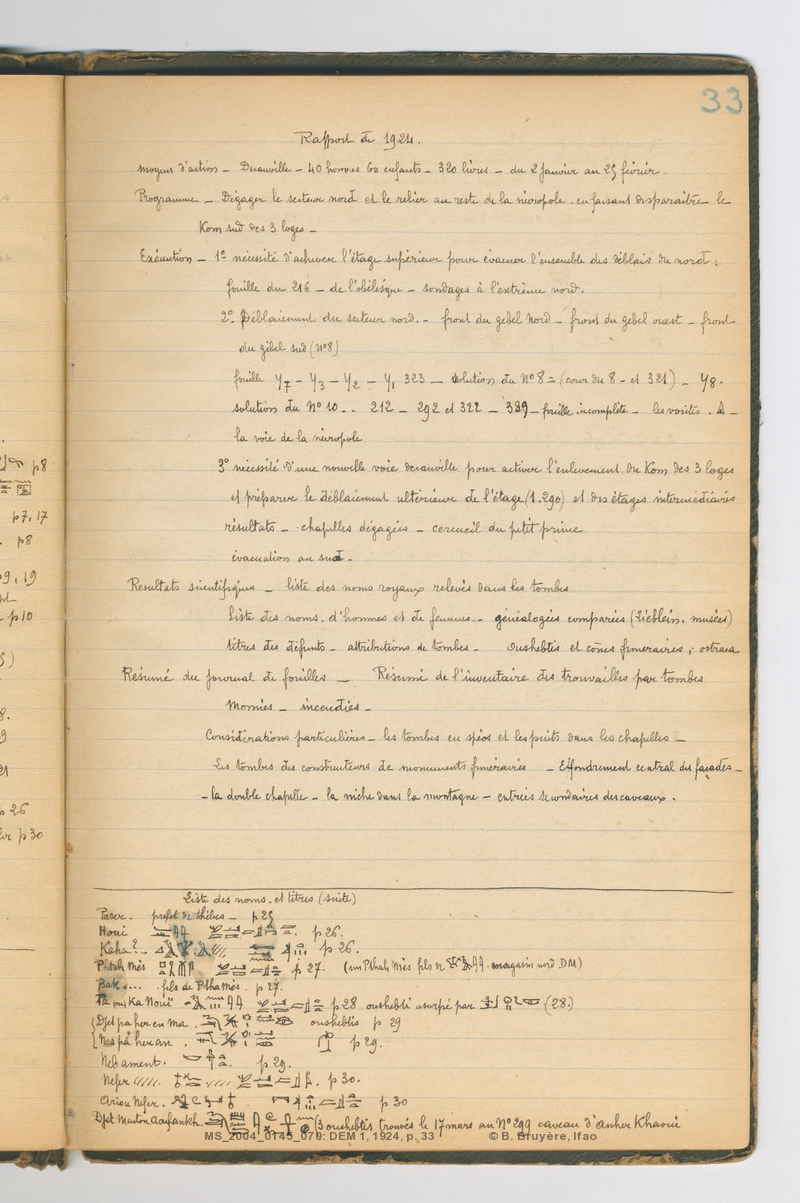 33
Rapport de 1924.
moyens d'action – Decauville – 40 hommes 60 enfants – 320 livres – du 2 Janvier au 25 février.
Programme – Dégager le secteur nord et le relier au reste de la nécropole en faisant disparaître le
Kom sud des 3 loges –
Exécution – 1º nécessité d'achever l'étage supérieur pour évacuer l'ensemble des déblais du nord :
fouille du 216 – de l'obélisque – sondages à l'extrème nord.
2º Déblaiement du secteur nord. – front du gebel Nord – front du gebel ouest – front
du gebel sud (Nº8)
fouille Y7 – Y3 – Y2 – Y1 323 – solution du Nº 8 = (cour du 8 – et 321) – Y8.
solution du Nº 10 – 212 – 292 et 322 – 329 – fouille incomplète – les voûtes. A –
la voie de la nécropole
3º nécessité d'une nouvelle voie decauville pour activer l'enlèvement du Kom des 3 loges
et préparer le déblaiement ultérieur de l'étage (1.290) et des étages intermédiaires
résultats – chapelles dégagées – cercueil du petit prince
évacuation au sud –
Resultats scientifiques – liste des noms royaux relevés dans les tombes
Liste des noms d'hommes et de femmes – généalogies comparées (Lieblein, musées)
titres des défunts – attributions de tombes – Oushebtis et cônes funeraires ; ostraca
Résumé du journal de fouilles – Résumé de l'inventaire des trouvailles par tombes
Momies – incendies –
Considérations particulières – les tombes en spéos et les puits dans les chapelles –
Les tombes des constructeurs de monuments funéraires – Effondrement central des façades –
– la double chapelle – la niche dans la montagne – entrées secondaires des caveaux.
Liste des noms et titres (suite)
Paser. préfet de thèbes – p 25
Houi p 26.
Kaha ? p 26.
Ptah mès p 27. (un Pthah Mès fils de magasin nord DM)
Bak.... fils de Pthamès. p 27.
p 28 oushebti usurpé par (28.)
(Djet pa her en ma. oushebtis p 29
p 29.
Nebament. p 29.
Nefer //// p 30.
Ariou Nefer. p 30
Djet Mouton Aoufankh. (3 oushebtis trouvés le 17 mars au Nº 299 caveau d'Anher Khaoui
MS_2004_0145_070: DEM 1, 1924, p. 33 © B. Bruyère, Ifao
p8
p7, 17
p8
p9, 19
p10
p26
p30